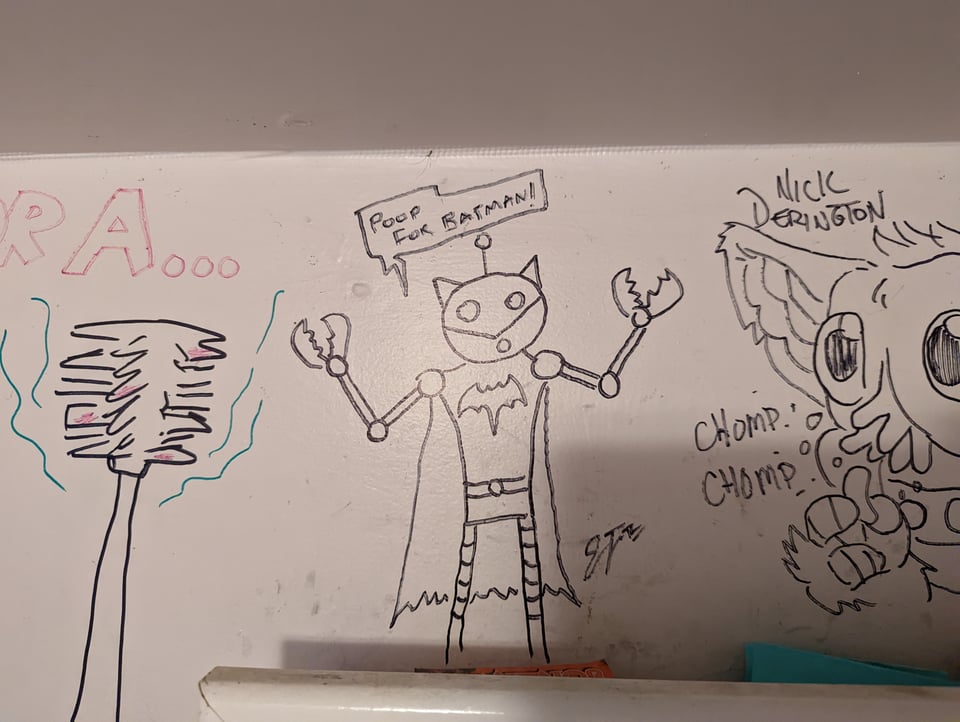 OR A...
POOP
FOR BATMAN!
NICK
DERINGTON
CHOMP!
CHOMP!